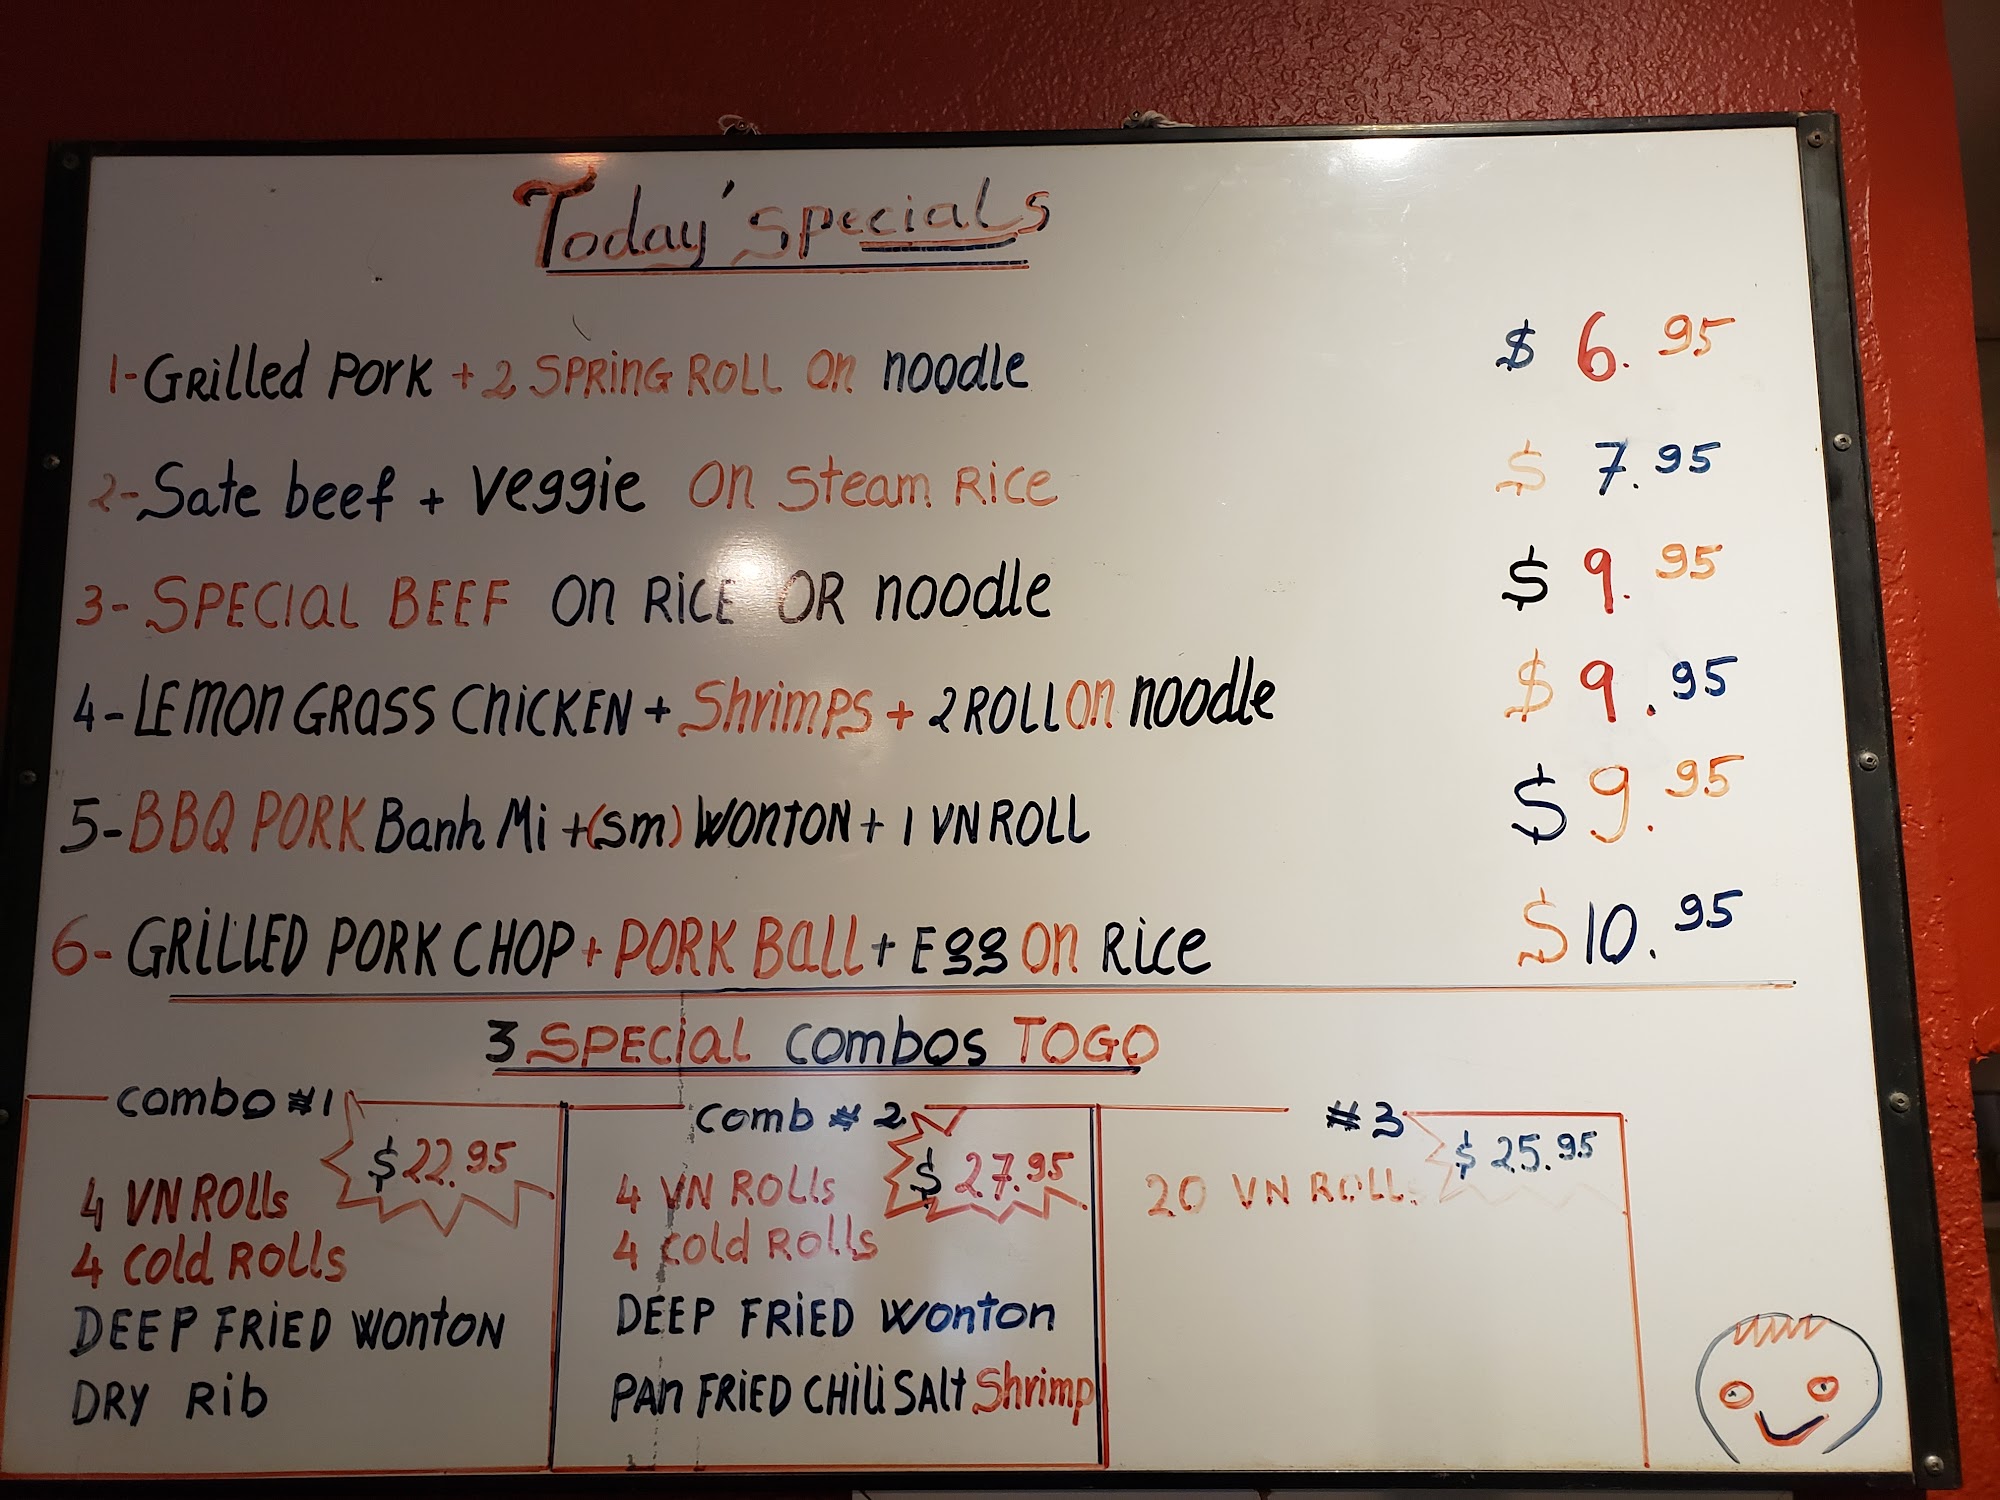 Today' specials
1-Grilled Pork + 2 SPRing ROLL On noodle $ 6.95
2-Sate beef + Veggie On Steam Rice $ 7.95
3- SPECIAL BEEF On RiCE OR noodle $ 9.95
4-LEmon GRASS ChiCKEN + ShrimPS + 2 ROLL On noodle $ 9.95
5-BBQ PORK Banh Mi +(sm) WonTON + 1 VN ROLL $ 9.95
6- GRiLLED PORK CHOP + PORK BAll + Egg On Rice $ 10.95
3 SPECIAL COMBOS TOGO
combo #1
$ 22.95
4 VN ROlls
4 Cold ROlls
DEEP FRiED WontoN
DRY Rib
comb # 2
$ 27.95
4 VN ROlls
4 Cold ROlls
DEEP FRiED Wonton
PAn FRiED CHiLi SAlt Shrimp
# 3
$ 25.95
20 VN ROLLS